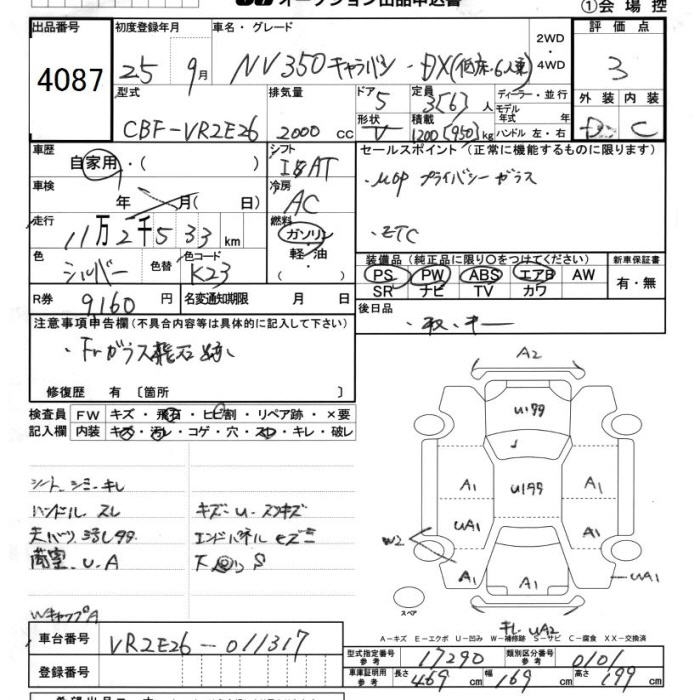 オークション出品申込書
①会場控
出品番号 4087
初度登録年月 25年 9月
車名・グレード NV350キャラバン・DX(低床・6人乗)
2WD・4WD
評価点 3
型式 CBF-VR2E26
排気量 2000 cc
ドア 5
形状 V
定員 3[6]人
積載 1200[950]kg
ディーラー・並行
モデル年式 年
ハンドル 左・右
外装 D
内装 C
車歴 自家用・( )
シフト IAT
セールスポイント(正常に機能するものに限ります)
・MOP プライバシーガラス
・ETC
車検 年 月( 日)
冷房 AC
走行 11万2千533km
燃料 ガソリン 軽・油 ・( )
色 シルバー
色替
色コード K23
R券 9,160円
名変通知期限 月 日
装備品(純正品に限り○をつけてください)
PS PW ABS エアB AW
SR ナビ TV カワ
新車保証書 有・無
後日品 ・取、キー
注意事項申告欄(不具合内容等は具体的に記入して下さい)
・Frガラス飛石
修復歴 有〔箇所 〕
検査員記入欄
FW キズ・飛石・ヒビ割・リペア跡・×要
内装 キズ・汚レ・コゲ・穴・スレ・キレ・破レ
シート、シミ・キレ
ハンドル スレ
荷室、U、A
Wキャップ A
キズ・U・スリキズ
エンドパネル
下 S
A2
U199
A1 U199 A1
UA1 A1
W2
A1 A1 UA1
スペア
キレ UA2
A―キズ E―エクボ U―凹み W―補修跡 S―サビ C―腐食 XX―交換済
車台番号 VR2E26-011317
登録番号
型式指定番号 参考 17290
類別区分番号 参考 0101
車庫証明用 参考 長さ 469cm 幅 169cm 高さ 199cm